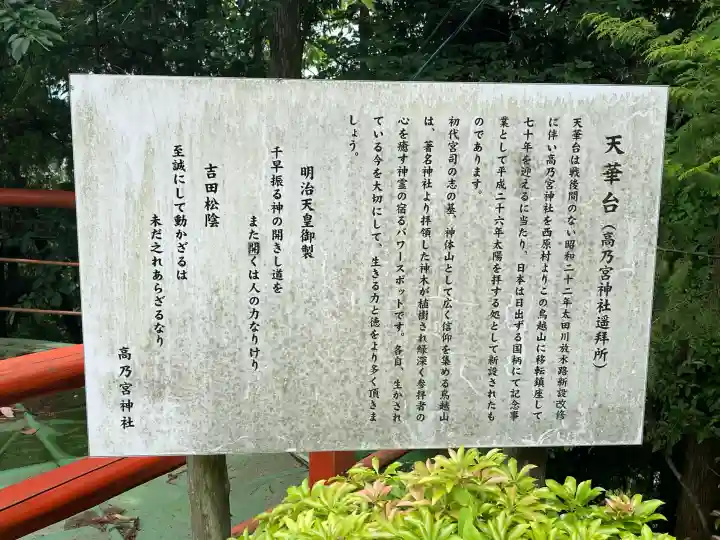 天華台（高乃宮神社遥拜所）
天華台は戦後間のない昭和二十二年太田川放水路新設改修
に伴い高乃宮神社を西原村よりこの鳥越山に移転鎮座して
七十年を迎えるに当たり、日本は日出ずる国柄にて記念事
業として平成二十六年太陽を拝する処として新設されたも
のであります。
初代宮司の志の墓、神体山として広く信仰を集める鳥越山
は、著名神社より拝領した神木が植樹され緑深く参拝者の
心を癒す神霊の宿るパワースポットです。各自、生かされ
ている今を大切にして、生きる力と徳をより多く頂きま
しょう。
明治天皇御製
千早振る神の開きし道を
また開くは人の力なりけり
吉田松陰
至誠にして動かざるは
未だ之れあらざるなり
高乃宮神社